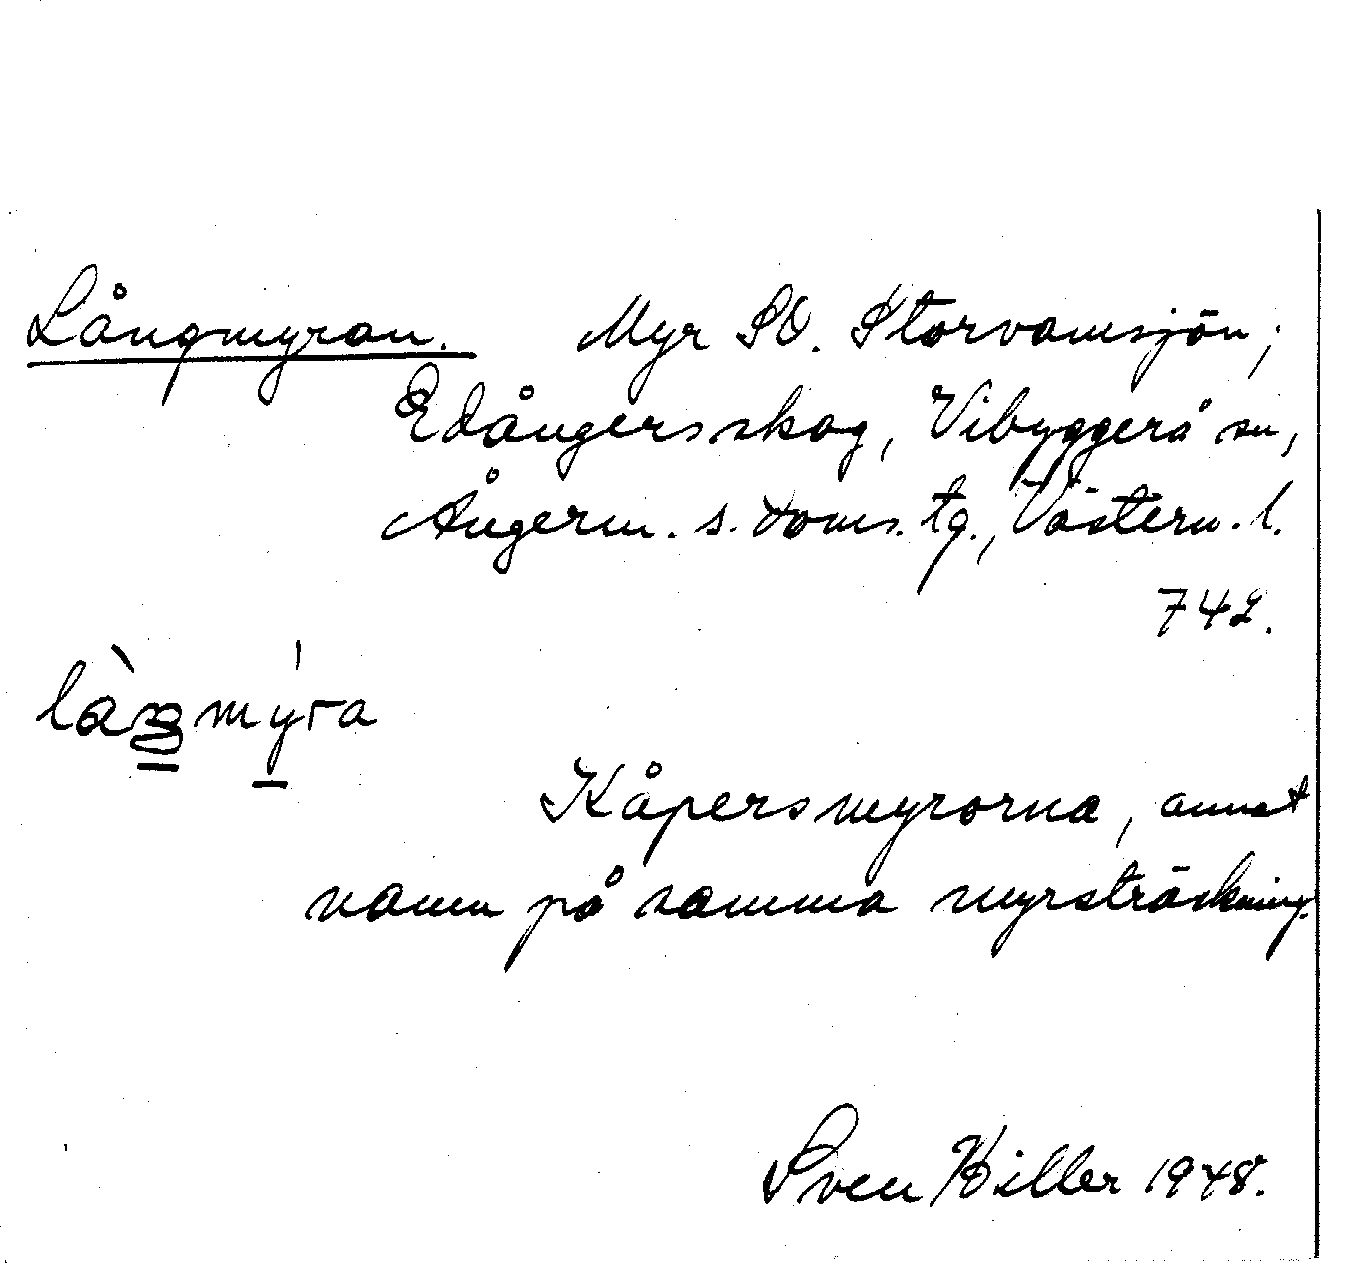 Långmyran. Myr SO. Storvamsjön;
Edångersskog, Vibyggerå sn,
Ångerm. s. doms. tg., Västern. l.
742.
làŋmy̍ra
Kåpersmyrorna, annat
namn på samma myrsträckning.
Sven Hiller 1948.